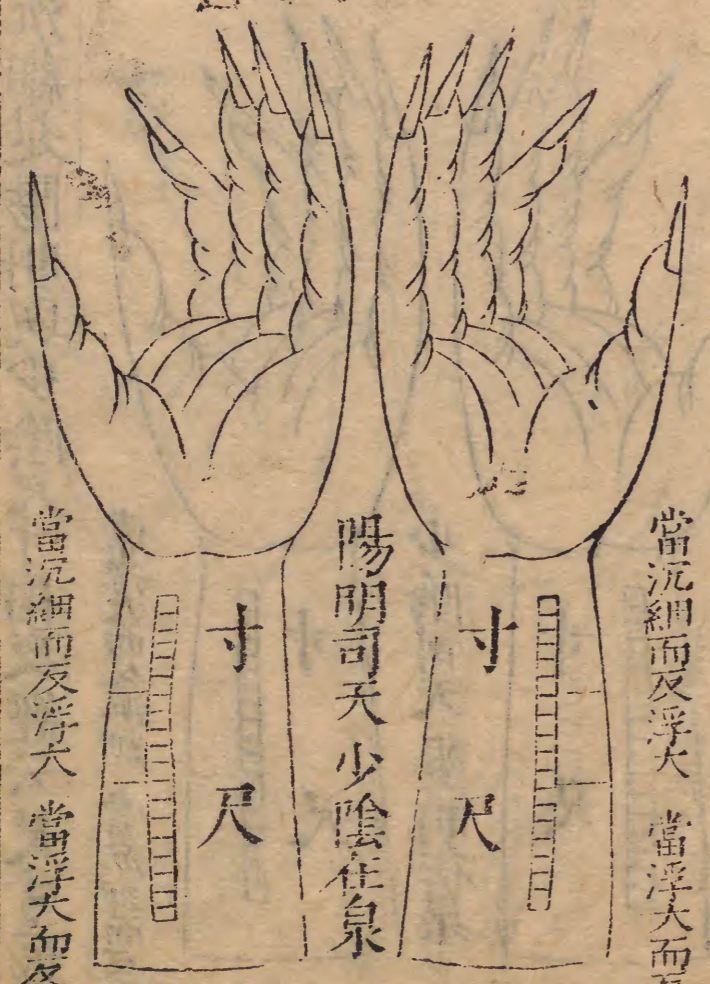 當沉細而反浮大 當浮大而
寸
尺
陽明司天 少陰在泉
寸
尺
當沉細而反浮大 當浮大而反